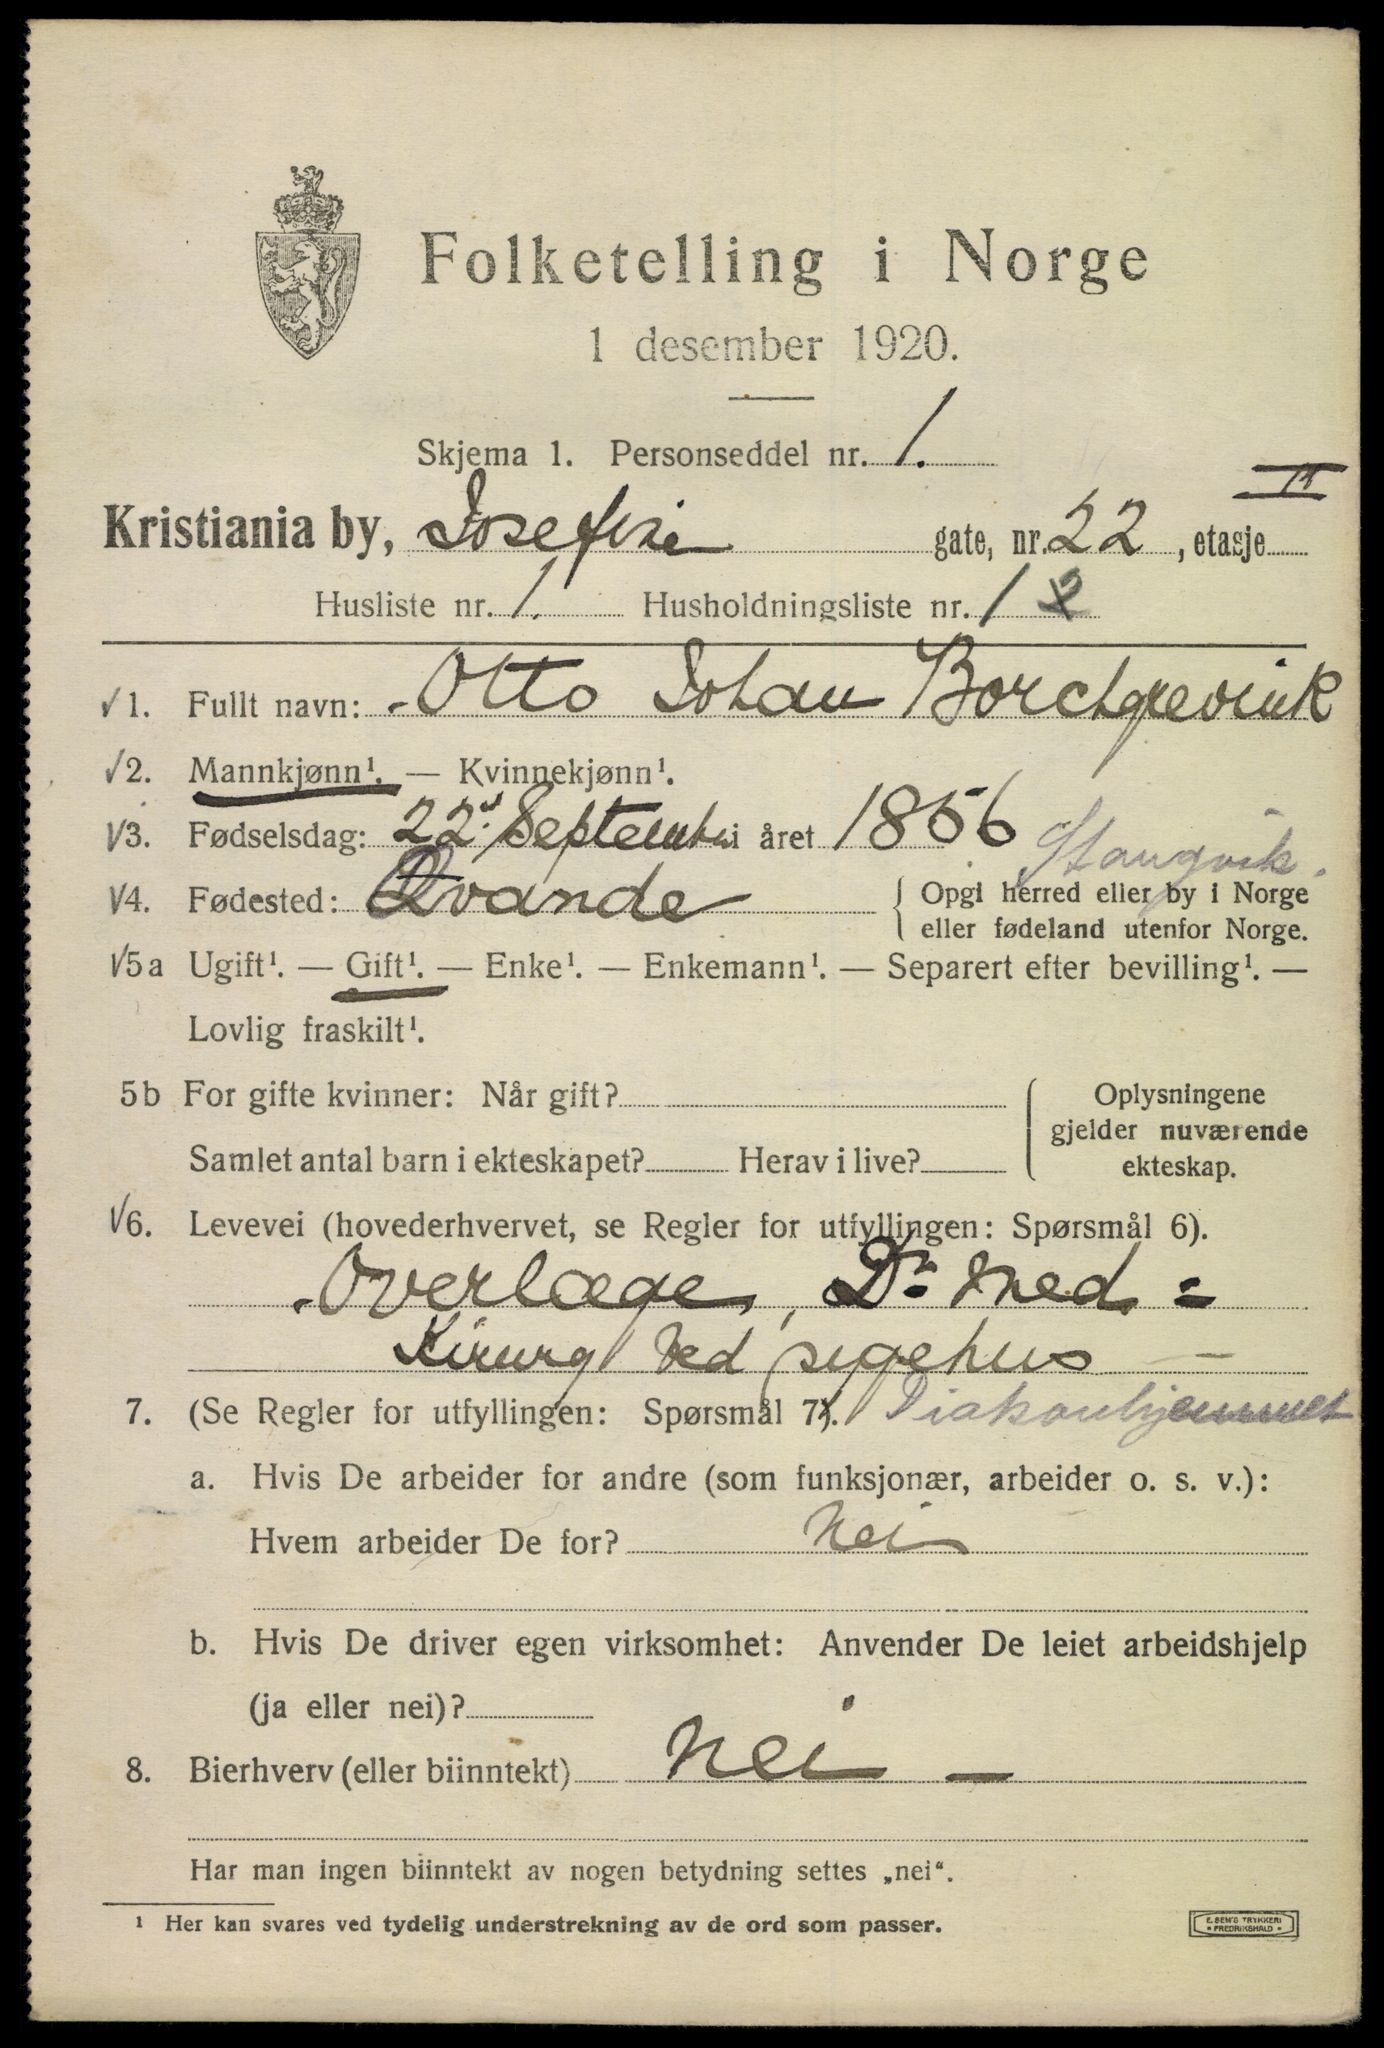 Folketelling i Norge
1 desember 1920.
Skjema 1. Personseddel nr. 1.
Kristiania by, Josefine gate, nr. 22, etasje II
Husliste nr. 1. Husholdningsliste nr. 1 2
1. Fullt navn: Otto Johan Borchgrevink
2. Mannkjønn¹. — Kvinnekjønn¹.
3. Fødselsdag: 22. September i året 1856
Stangvik.
4. Fødested: Qvande { Opgi herred eller by i Norge
eller fødeland utenfor Norge.
5a Ugift¹. — Gift¹. — Enke¹. — Enkemann¹. — Separert efter bevilling¹. —
Lovlig fraskilt¹.
5b For gifte kvinner: Når gift? { Oplysningene
gjelder nuværende
Samlet antal barn i ekteskapet? Herav i live? ekteskap.
6. Levevei (hovederhvervet, se Regler for utfyllingen: Spørsmål 6).
Overlæge, Dr. med =
Kirurg ved sygehus —
7. (Se Regler for utfyllingen: Spørsmål 7). Diakonhjemmet
a. Hvis De arbeider for andre (som funksjonær, arbeider o. s. v.):
Hvem arbeider De for? Nei
b. Hvis De driver egen virksomhet: Anvender De leiet arbeidshjelp
(ja eller nei)?
8. Bierhverv (eller biinntekt) Nei —
Har man ingen biinntekt av nogen betydning settes „nei“.
¹ Her kan svares ved tydelig understrekning av de ord som passer.
E. SEM'S TRYKKERI
• FREDRIKSHALD •